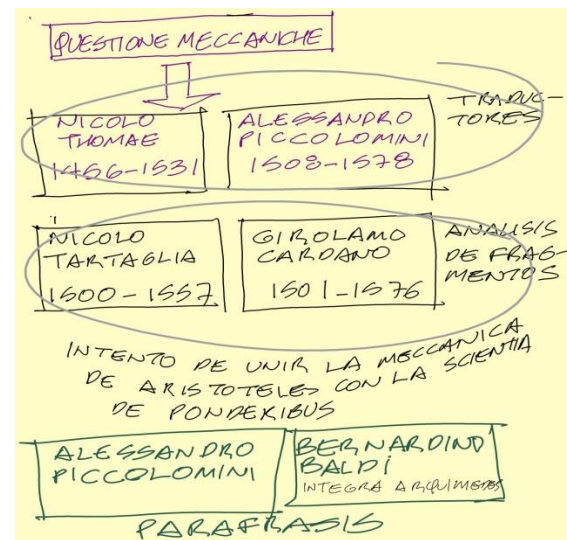 QUESTIONE MECCANICHE
NICOLO
THOMAE
1456-1531
ALESSANDRO
PICCOLOMINI
1508-1578
TRADUC-
TORES
NICOLO
TARTAGLIA
1500-1557
GIROLAMO
CARDANO
1501-1576
ANALISIS
DE FRAG-
MENTOS
INTENTO DE UNIR LA MECCANICA
DE ARISTOTELES CON LA SCIENTIA
DE PONDERIBUS
ALESSANDRO
PICCOLOMINI
BERNARDINO
BALDI
INTEGRA ARQUIMEDES
PARAFRASIS